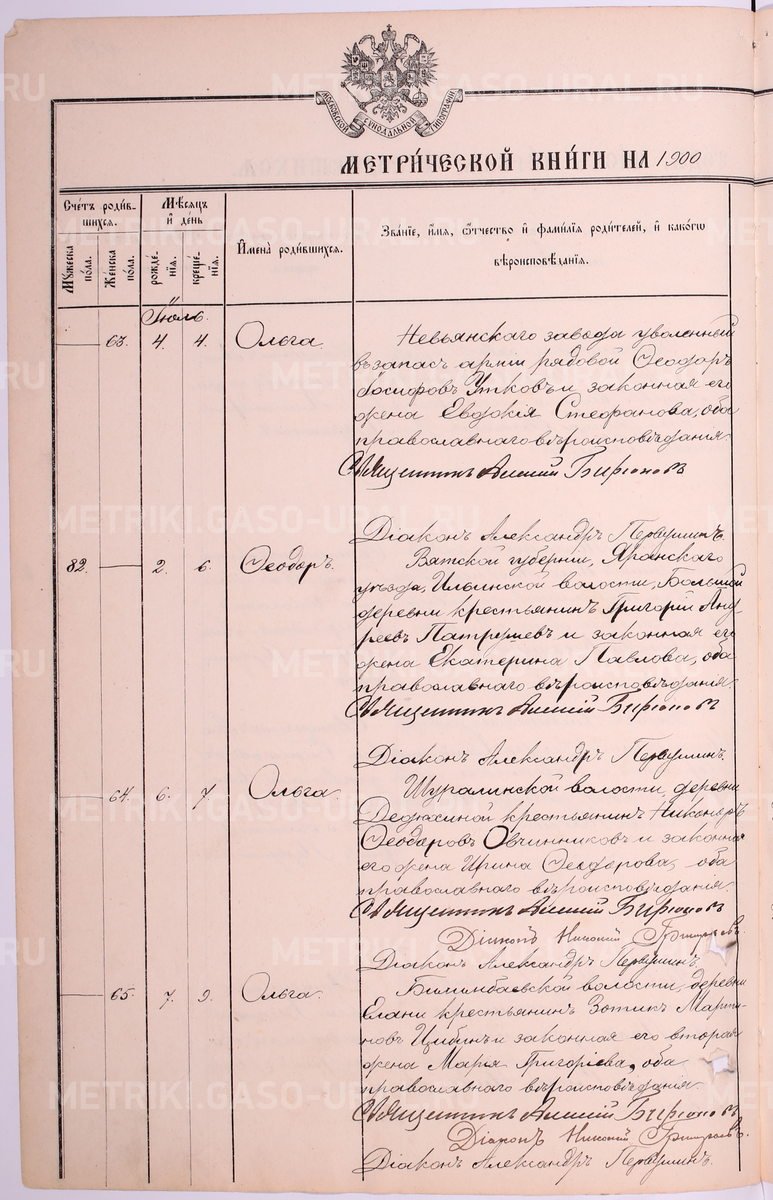 МОСКОВСКОЙ СѴНОДАЛЬНОЙ ТИПОГРАФІИ
МЕТРИ́ЧЕСКОЙ КНИ́ГИ НА 1900
Сче́тъ роди́в-
шихся.
Мѣ́сяцъ
и҆ де́нь
И҆мена̀ роди́вшихся.
Зва́нїе, и҆́мя, ѻ҆́тчество и҆ фами́лїя роди́телей, и҆ како́гѡ
вѣроисповѣ́данїя.
Мꙋ́жеска по́ла.
Же́нска по́ла.
рожде́-нїя.
креще́-нїя.
Іюль.
63. 4. 4. Ольга
Невьянскаго завода уволенный
въ запасъ арміи рядовой Ѳеодоръ
Іосифовъ Утковъ и законная его
жена Евдокія Стефанова, оба
православнаго вѣроисповѣданія.
Священникъ Алексій Бирюковъ
Діаконъ Александръ Первушинъ.
82. 2. 6. Ѳеодоръ.
Вятской губерніи, Яранскаго
уѣзда, Ильинской волости, Большой
деревни крестьянинъ Григорій Анд-
реевъ Патрушевъ и законная его
жена Екатерина Павлова, оба
православнаго вѣроисповѣданія.
Священникъ Алексій Бирюковъ
Діаконъ Александръ Первушинъ.
64. 6. 7. Ольга.
Шуралинской волости, деревни
крестьянинъ Никаноръ
Ѳеодоровъ Овчинниковъ и законная
его жена Ирина Ѳеодорова, оба
православнаго вѣроисповѣданія.
Священникъ Алексій Бирюковъ
Діаконъ Николай
Діаконъ Александръ Первушинъ.
65. 7. 9. Ольга.
Билимбаевской волости, деревни
Елани крестьянинъ Зотикъ Марти-
новъ Цибинъ и законная его вторая
жена Марья Григоріева, оба
православнаго вѣроисповѣданія.
Священникъ Алексій Бирюковъ
Діаконъ Николай
Діаконъ Александръ Первушинъ.
METRIKI.GASO-URAL.RU